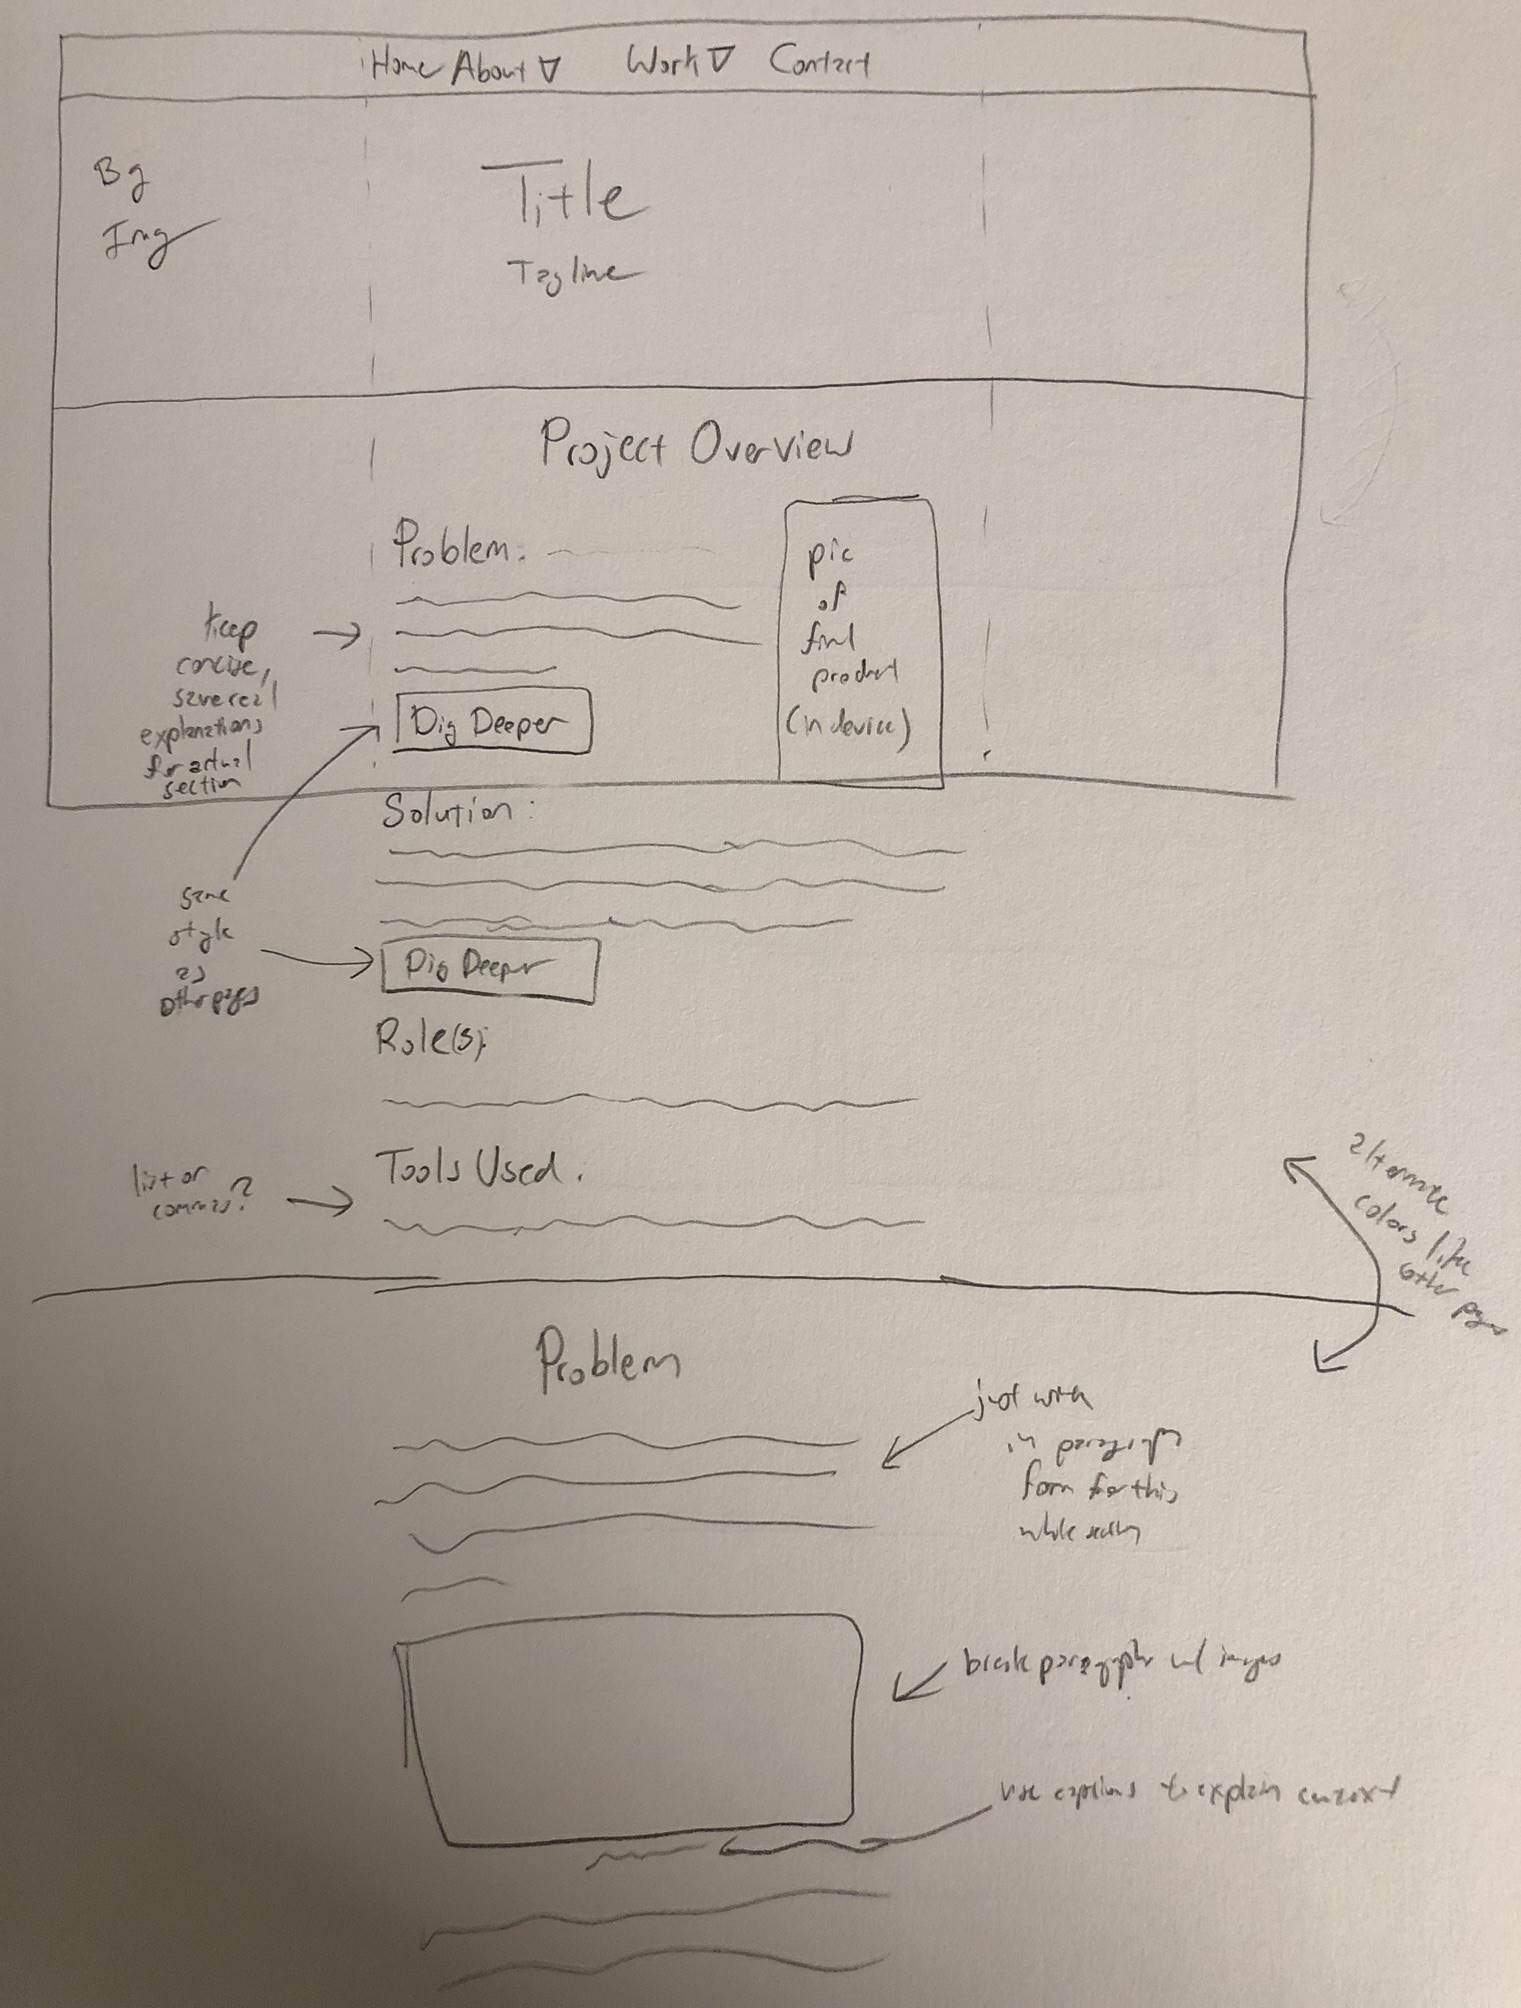 Home About ▽ Work ▽ Contact
Bg
Img
Title
Tagline
Project Overview
Problem:
pic
of
final
product
(in device)
Keep
concise,
save real
explanations
for actual
section
Dig Deeper
Solution:
same
style
as
other pages
Dig Deeper
Role(s):
Tools Used:
list or
commas?
alternate
colors like
other pages
Problem
just work
in paragraph
form for this
whole section
break paragraphs w/ images
use captions to explain context